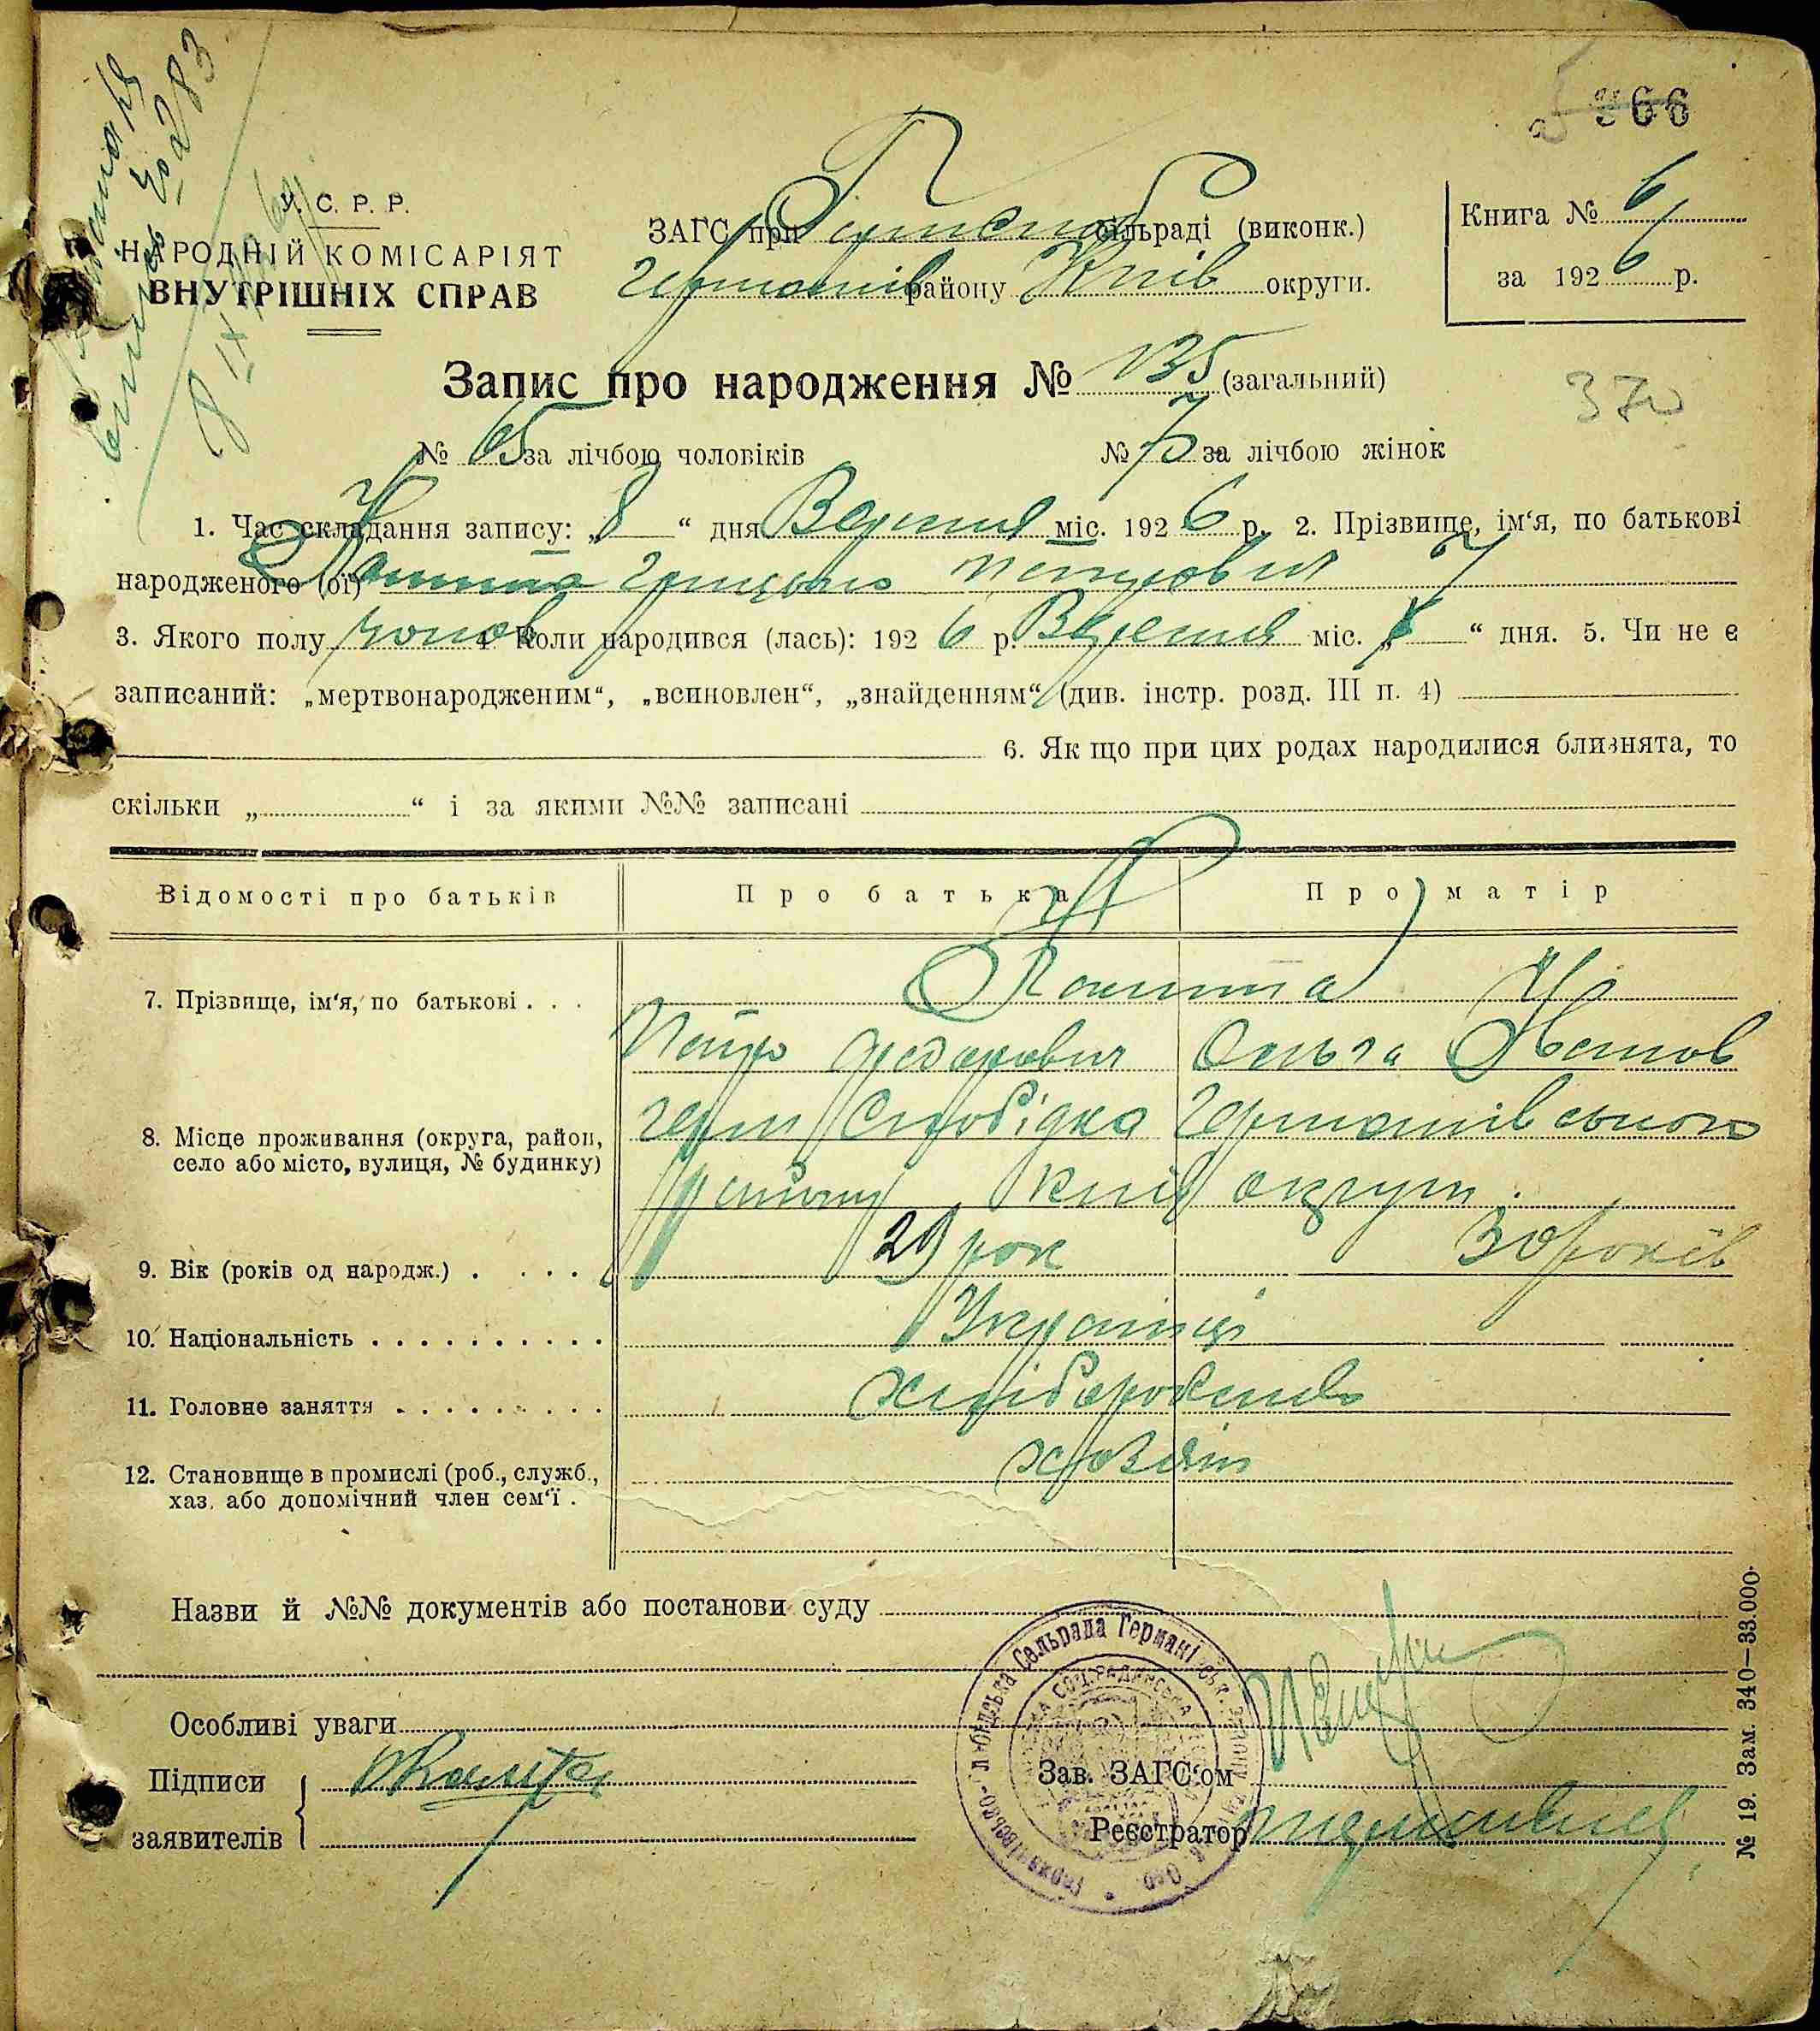 366
У. С. Р. Р.
НАРОДНІЙ КОМІСАРІЯТ
ВНУТРІШНІХ СПРАВ
ЗАГС при сільраді (виконк.)
району Київ округи.
Книга № 6
за 1926 р.
Запис про народження № 135 (загальний)
370
№ 65 за лічбою чоловіків № 70 за лічбою жінок
1. Час складання запису: „8“ дня Вересня міс. 1926 р. 2. Прізвище, ім‘я, по батькові
народженого (ої) Грицько Петрович
3. Якого полу чолов 4 Коли народився (лась): 1926 р. Вересня міс. „ “ дня. 5. Чи не є
записаний: „мертвонародженим“, „всиновлен“, „знайденням“ (див. інстр. розд. III п. 4)
6. Як що при цих родах народилися близнята, то
скільки „ “ і за якими №№ записані
Відомості про батьків Про батька Про матір
7. Прізвище, ім‘я, по батькові . . .
Петро Федорович Ольга
8. Місце проживання (округа, район, село або місто, вулиця, № будинку)
Герм Слобідка Германівського
району Київ округи.
9. Вік (років од народж.) . . . . . 29 рок 30 років
10. Національність . . . . . . . . . . Українці
11. Головне заняття . . . . . . . . . хліборобство
12. Становище в промислі (роб., служб., хаз. або допомічний член сем‘ї . хозяїн
Назви й №№ документів або постанови суду
Особливі уваги
Підписи
заявителів
Зав. ЗАГС‘ом
Реєстратор
№ 19. Зам. 340—33.000.